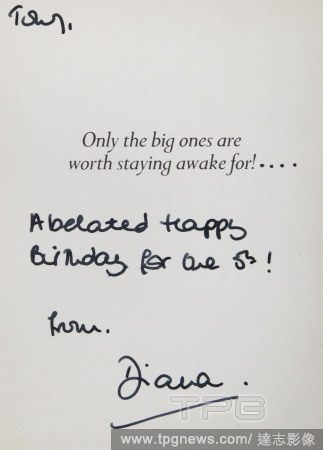 Tony,
Only the big ones are
worth staying awake for!....
A belated Happy
Birthday for the 5th!
from.
Diana.
TPG
www.tpgnews.com / 達志影像